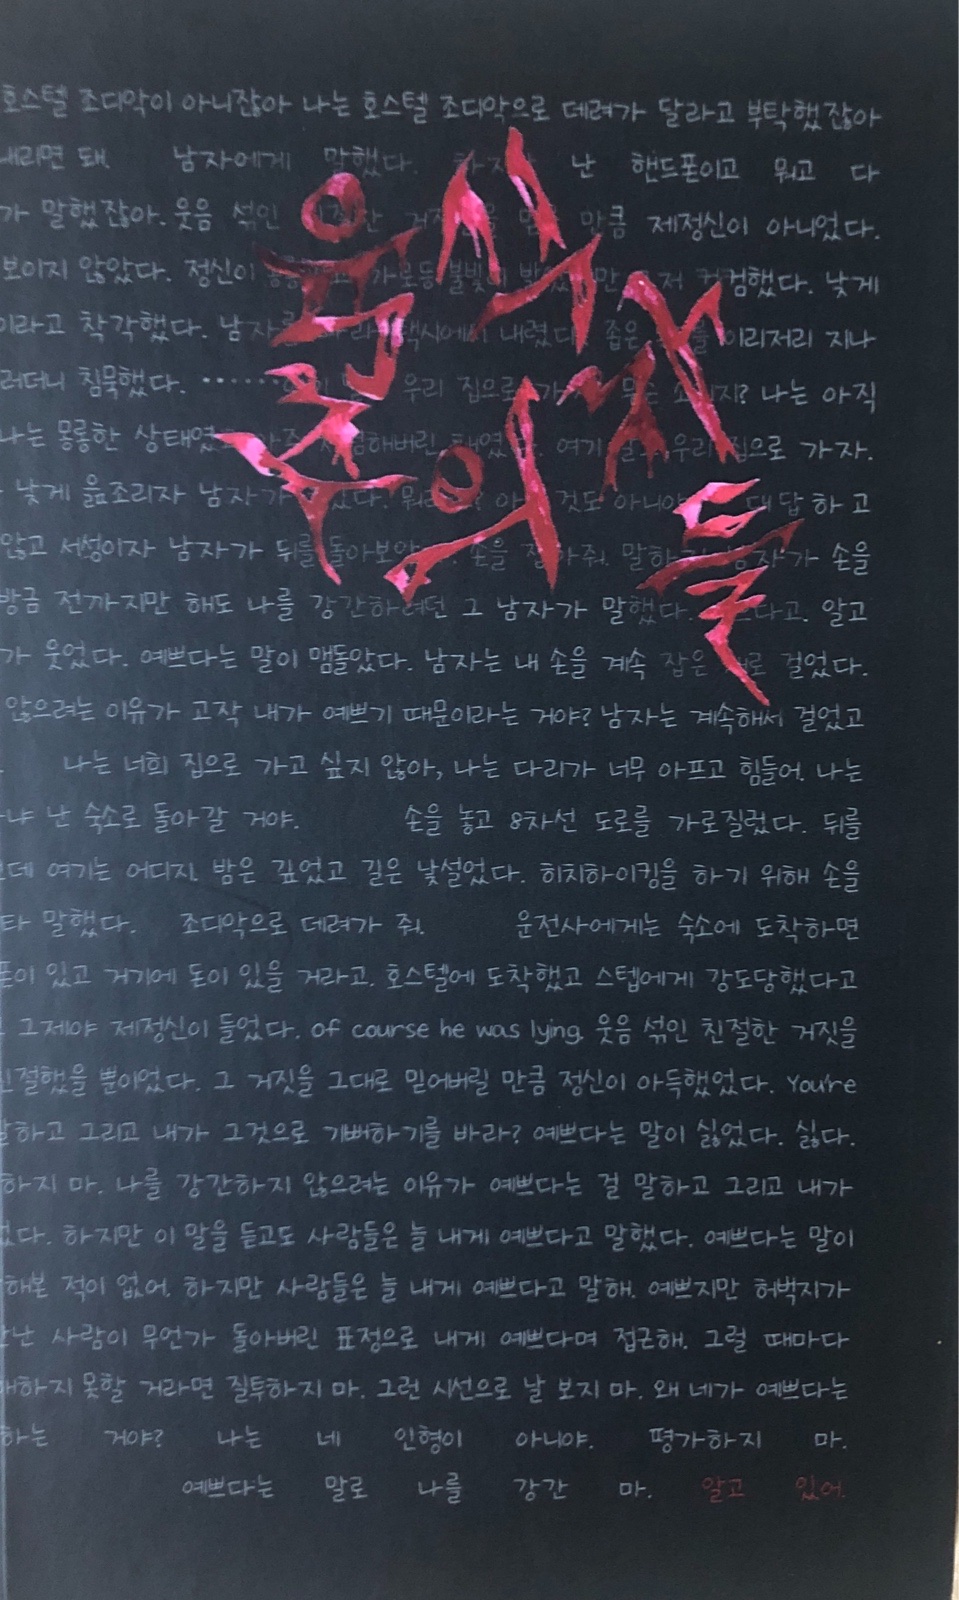 주의자들
호스텔 조디악이 아니잖아 나는 호스텔 조디악으로 데려가 달라고 부탁했잖아
내리면 돼. 남자에게 말했다. 난 핸드폰이고 뭐고 다
가 말했잖아. 웃음 섞인 만큼 제정신이 아니었다.
보이지 않았다. 정신이 가로등 불빛 컴컴했다. 낮게
이라고 착각했다. 남자 택시에서 내렸다 좁은 이리저리 지나
러더니 침묵했다. …… 우리 집으로 가 나는 아직
나는 몽롱한 상태였 여기 우리 집으로 가자.
낮게 읊조리자 남자가 것도 아니야 대답하고
않고 서성이자 남자가 뒤를 돌아보았 손을 잡아줘. 말하 남자가 손을
방금 전까지만 해도 나를 강간하려던 그 남자가 말했다. 알고
가 웃었다. 예쁘다는 말이 맴돌았다. 남자는 내 손을 계속 잡은 채로 걸었다.
않으려는 이유가 고작 내가 예쁘기 때문이라는 거야? 남자는 계속해서 걸었고
나는 너희 집으로 가고 싶지 않아, 나는 다리가 너무 아프고 힘들어. 나는
냐 난 숙소로 돌아갈 거야. 손을 놓고 8차선 도로를 가로질렀다. 뒤를
데 여기는 어디지. 밤은 깊었고 길은 낯설었다. 히치하이킹을 하기 위해 손을
타 말했다. 조디악으로 데려가 줘. 운전사에게는 숙소에 도착하면
돈이 있고 거기에 돈이 있을 거라고. 호스텔에 도착했고 스텝에게 강도당했다고
그제야 제정신이 들었다. of course he was lying. 웃음 섞인 친절한 거짓을
친절했을 뿐이었다. 그 거짓을 그대로 믿어버릴 만큼 정신이 아득했었다. You're
말하고 그리고 내가 그것으로 기뻐하기를 바라? 예쁘다는 말이 싫었다. 싫다.
하지 마. 나를 강간하지 않으려는 이유가 예쁘다는 걸 말하고 그리고 내가
다. 하지만 이 말을 듣고도 사람들은 늘 내게 예쁘다고 말했다. 예쁘다는 말이
해본 적이 없어. 하지만 사람들은 늘 내게 예쁘다고 말해. 예쁘지만 허벅지가
난 사람이 무언가 돌아버린 표정으로 내게 예쁘다며 접근해. 그럴 때마다
하지 못할 거라면 질투하지 마. 그런 시선으로 날 보지 마. 왜 네가 예쁘다는
하는 거야? 나는 네 인형이 아니야. 평가하지 마.
예쁘다는 말로 나를 강간 마. 알고 있어.